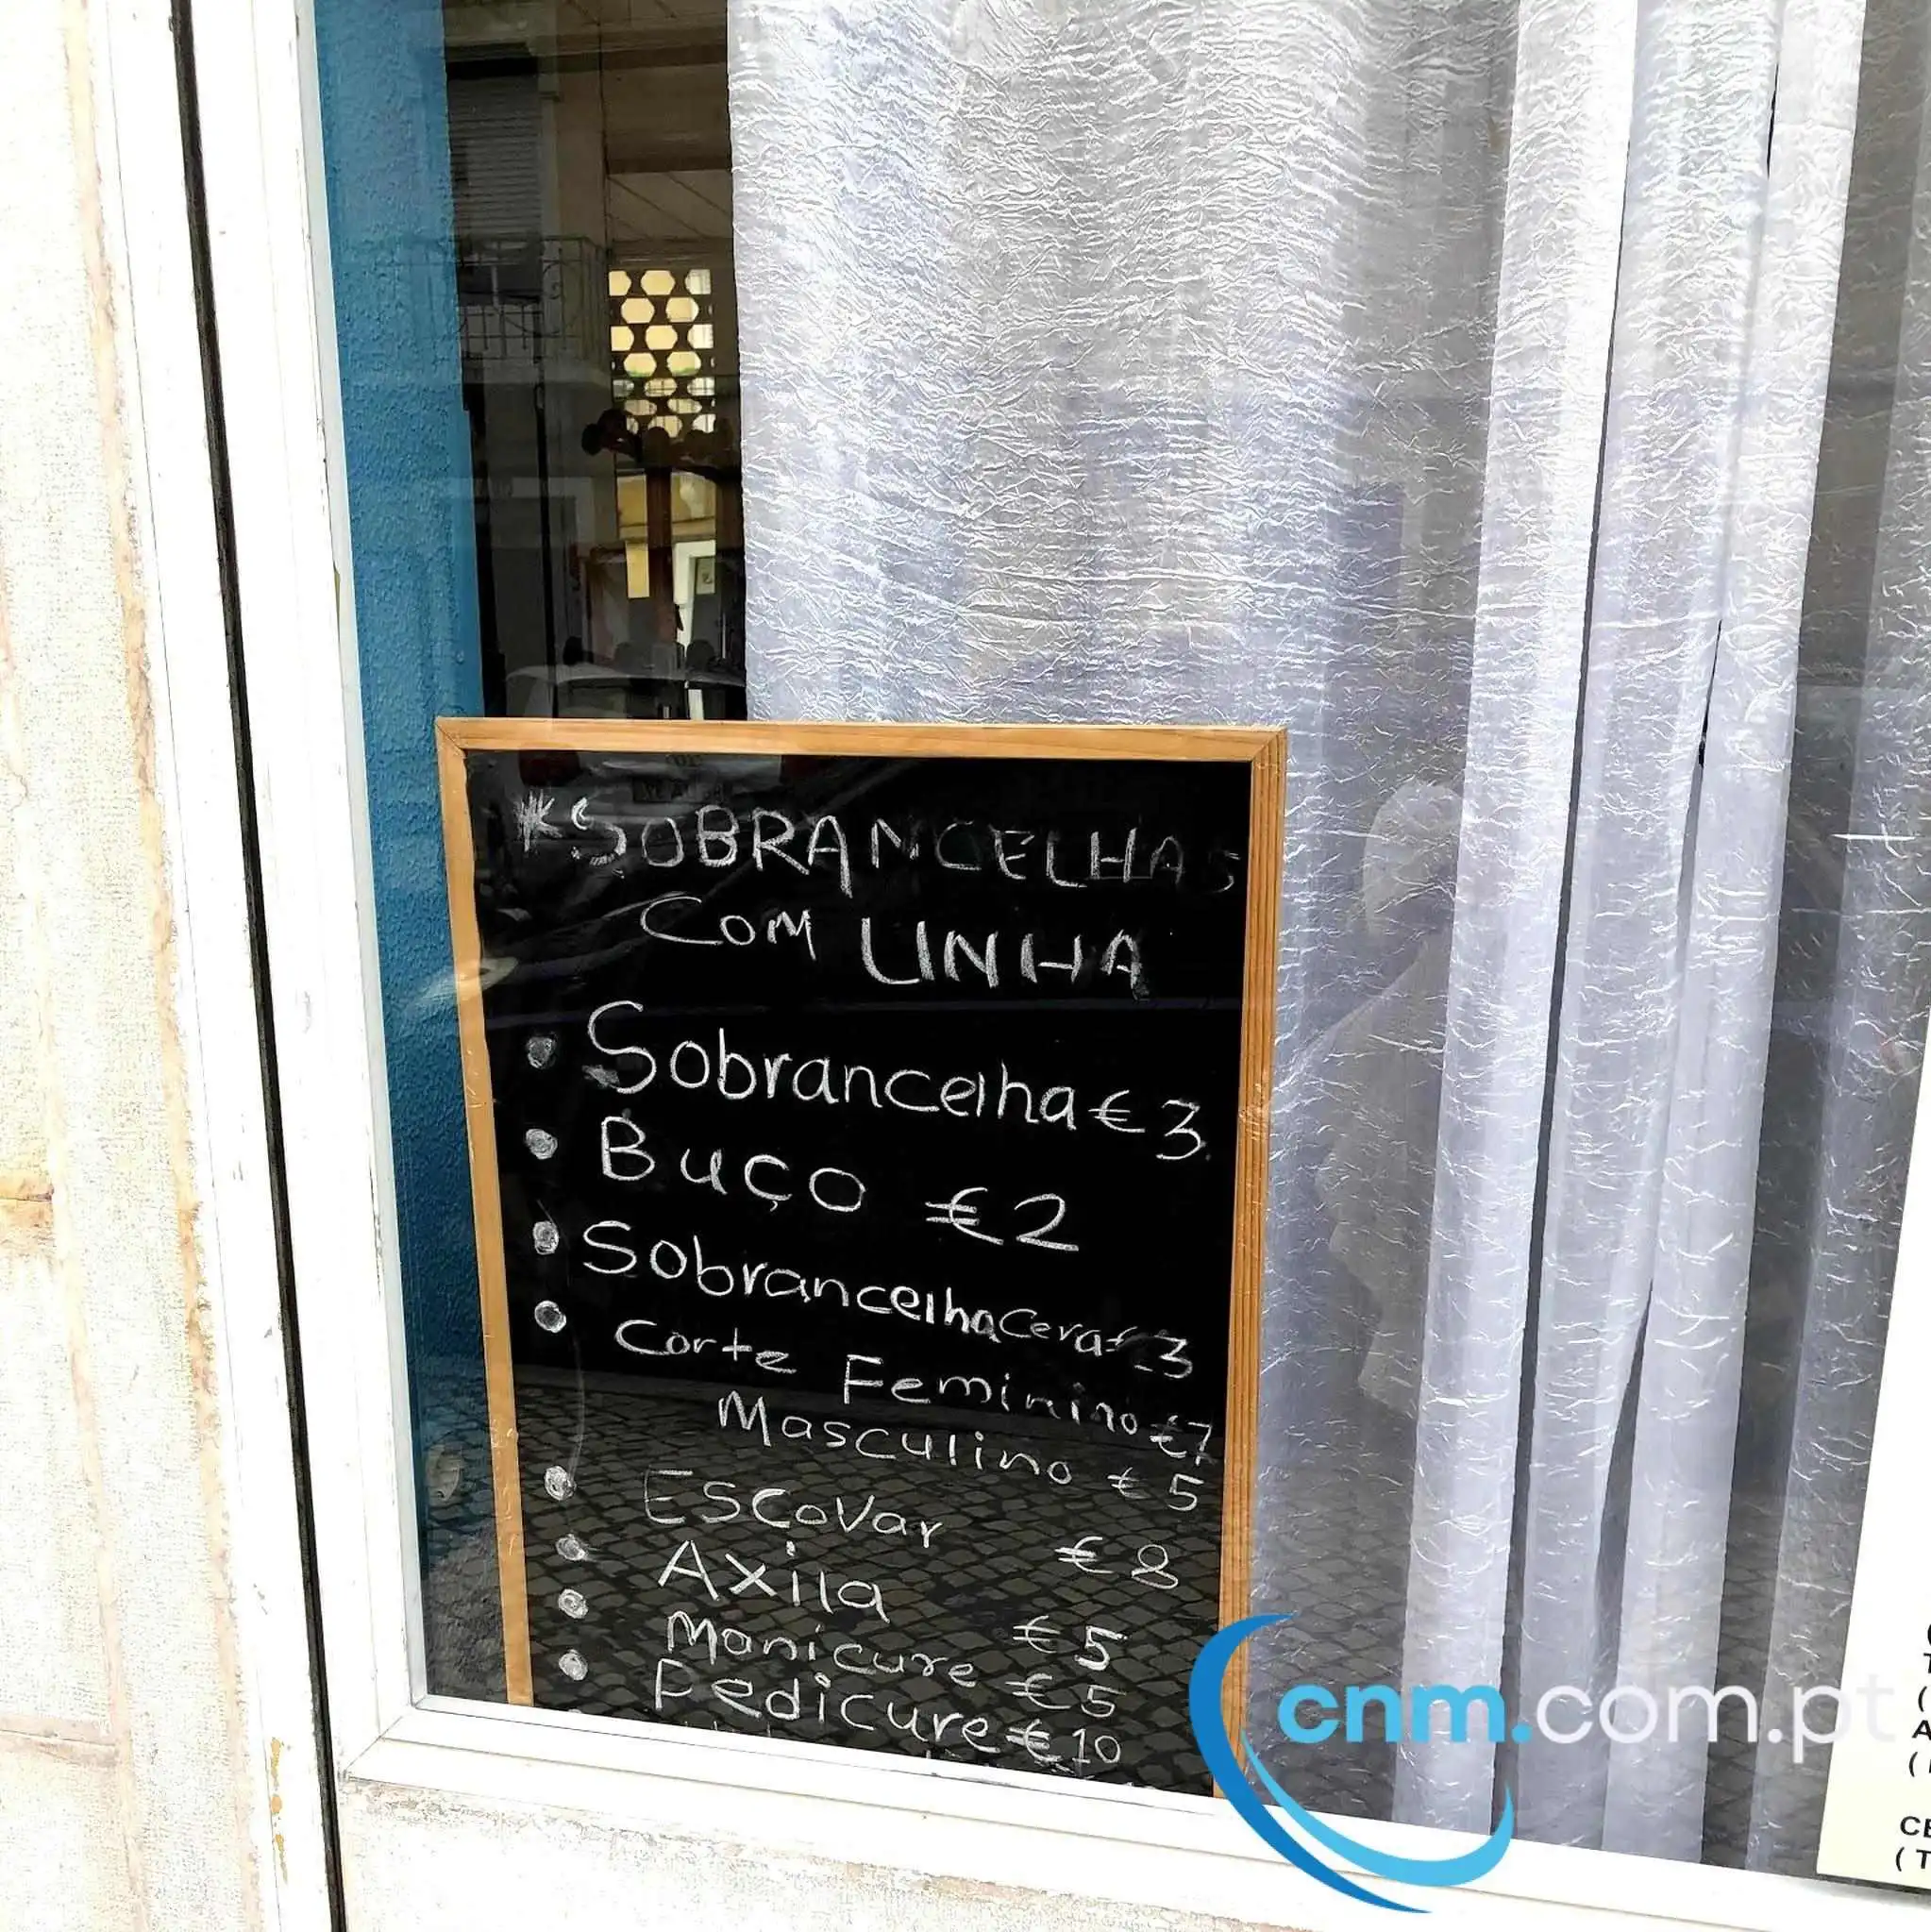 *SOBRANCELHAS
COM LINHA
• Sobrancelha € 3
• Buço €2
• Sobrancelha Cera € 3
• Corte Feminino €7
Masculino € 5
• Escovar € 8
• Axila € 5
• Manicure € 5
• Pedicure € 10
cnm.com.pt